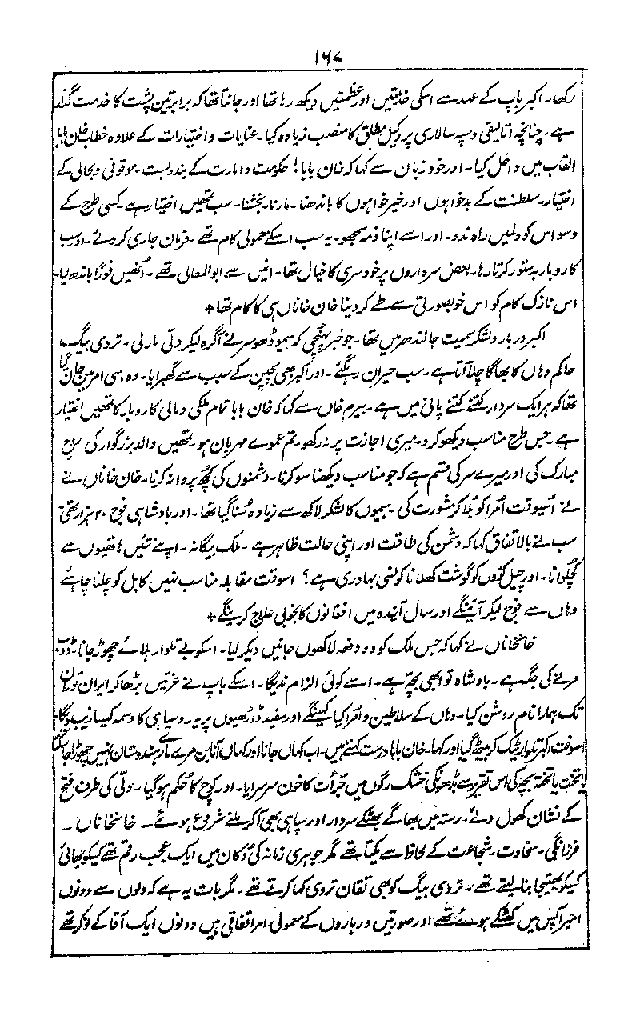 ۱۶۷
رکھا۔ اکبر باپ کے عہد سے اسکی خدمتیں اور عظمتیں دیکھ رہا تھا اور جانتا تھا کہ برابر تین پشت کا خدمت گذار
ہے۔ چنانچہ اتالیقی و سپہ سالاری پر وکیل مطلق کا منصب زیادہ کیا۔ عنایات و اختیارات کے علاوہ خطاب خان بابا
القاب میں داخل کیا۔ اور خود زبان سے کہا کہ خان بابا! حکومت و امارت کے بندوبست۔ موقوفی و بحالی کے
اختیار۔ سلطنت کے بدخواہوں اور خیرخواہوں کا باندھنا۔ مارنا۔ بخشنا۔ سب تمھیں اختیار ہے کسی طرح کے
وسواس کو دل میں راہ ندو۔ اور اسے اپنا ذمہ سمجھو۔ یہ سب اسکے معمولی کام تھے۔ فرمان جاری کر دئے۔ اور سب
کاروبار بدستور کرتا رہا۔ بعض سرداروں پر خود سری کا خیال تھا۔ انہیں سے ابوالمعالی تھے۔ اُنھیں فوراً باندھ لیا۔
اس نازک کام کو اس خوبصورتی سے طے کر دینا خان خاناں ہی کا کام تھا ٭
اکبر دربار و لشکر سمیت جالندھر میں تھا۔ جو خبر پہنچی کہ ہیموں ڈھوسر نے آگرہ لیکر دلی مار لی۔ تردی بیگ
حاکم وہاں کا بھاگا چلا آتا ہے۔ سب حیران رہگئے۔ اور اکبر بھی بچپن کے سبب سے گھبرایا۔ وہ ہی امر میں جان گیا
تھا کہ ہر ایک سردار کتنے کتنے پانی میں ہے۔ بیرم خاں سے کہا کہ خان بابا تمام ملکی و مالی کاروبار کا تمھیں اختیار
ہے۔ جس طرح مناسب دیکھو کرو۔ میری اجازت پر نہ رکھو۔ تم عموے مہربان ہو۔ تمھیں والد بزرگوار کی روح
مبارک کی اور میرے سر کی قسم ہے کہ جو مناسب دیکھنا سو کرنا۔ دشمنوں کی کچھ پروا نہ کرنا۔ خان خاناں نے
اُسیوقت اُمرا کو بُلا کر مشورت کی۔ ہیموں کا لشکر لاکھ سے زیادہ سُنا گیا تھا۔ اور بادشاہی فوج ۲۰ ہزار تھی
سب نے بالاتفاق کہا کہ دشمن کی طاقت اور اپنی حالت ظاہر ہے۔ ملک بیگانہ۔ اپنے تئیں ہاتھیوں سے
کچلوانا۔ اور چیل کووں کو گوشت کھلانا کونسی بہادری ہے؟ اسوقت مقابلہ مناسب نہیں کابل کو چلنا چاہئے
وہاں سے فوج لیکر آئینگے اور سال آیندہ میں افغانوں کا بخوبی علاج کرینگے ٭
خانخاناں نے کہا کہ جس ملک کو دو دفعہ لاکھوں جانیں دیکر لیا۔ اسکو بے تلوار ہلائے چھوڑ جانا ڈوب
مرنے کی جگہ ہے۔ بادشاہ تو ابھی بچہ ہے۔ اسے کوئی الزام ندیگا۔ اسکے باپ نے عزتیں بڑھا کر ایران توران
تک ہمارا نام روشن کیا۔ وہاں کے سلاطین و اُمرا کیا کہینگے اور سفید ڈاڑھیوں پر یہ روسیاہی کا وسمہ کیسا زیب دیگا۔
اسوقت اکبر تلوار ٹیک کر بیٹھ گیا اور کہا۔ خان بابا درست کہتے ہیں۔ اب کہاں جانا اور کہاں آنا۔ بن مرے مارے ہندوستان نہیں چھوڑا جاسکتا
یا تخت یا تختہ بچہ کی اس تقریر سے بڈھوں کی خشک رگوں میں جرأت کا خون سرسرایا۔ اور کوچ کا حکم ہو گیا۔ دلی کی طرف فتح
کے نشان کھول دئے۔ رستہ میں بھاگے بھٹکے سردار اور سپاہی بھی آ کر ملنے شروع ہوئے۔ خانخاناں۔
فرزانگی۔ سخاوت۔ شجاعت کے لحاظ سے یکتا تھے مگر جوہری زمانہ کی دُکان میں ایک عجب رقم تھے کیسکو بھائی
کیسکو بھتیجا بنا لیتے تھے۔ تردی بیگ کو بھی تقان تردی کہا کرتے تھے۔ مگر بات یہ ہے کہ دلوں سے دونوں
امیر آپس میں کھٹکے ہوئے تھے اور صورتیں درباروں کے معمولی امر اتفاقی ہیں دونوں ایک آقا کے نوکر تھے